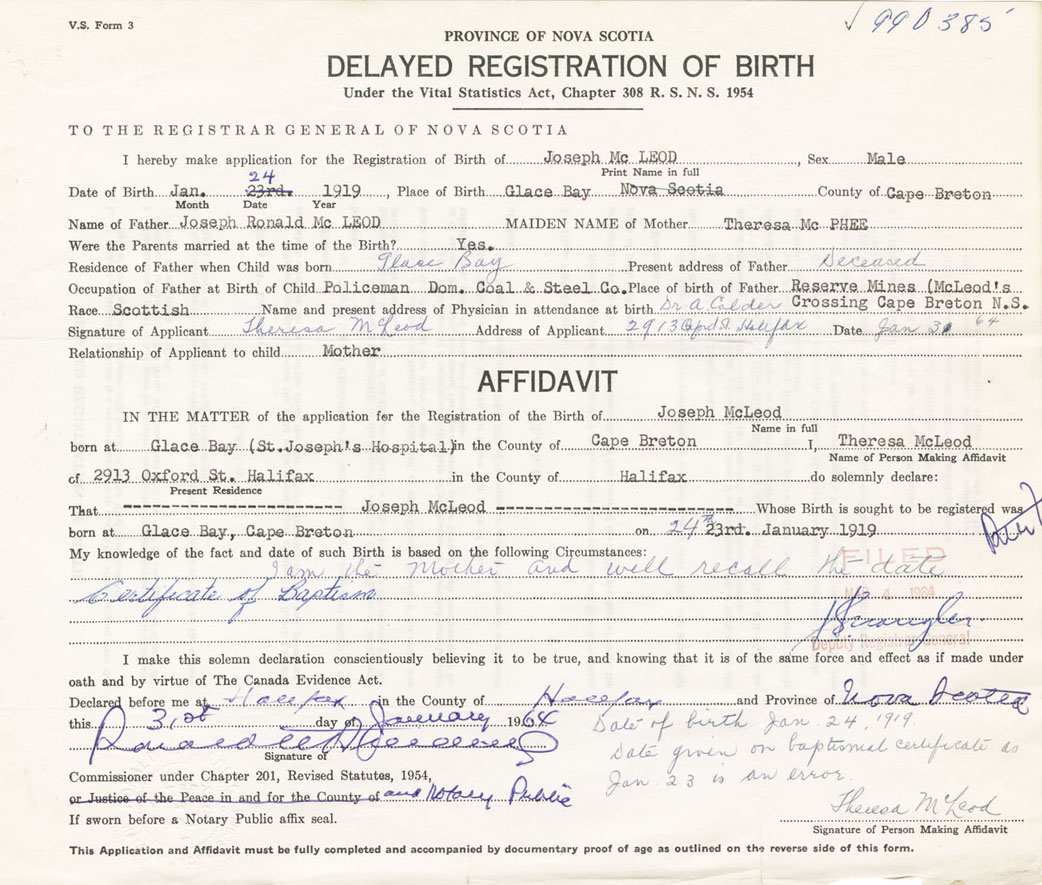 V.S. Form 3
√ 990 385
PROVINCE OF NOVA SCOTIA
DELAYED REGISTRATION OF BIRTH
Under the Vital Statistics Act, Chapter 308 R. S. N. S. 1954
TO THE REGISTRAR GENERAL OF NOVA SCOTIA
I hereby make application for the Registration of Birth of Joseph Mc LEOD, Sex Male
Print Name in full
24
Date of Birth Jan. 23rd. 1919, Place of Birth Glace Bay Nova Scotia County of Cape Breton
Month Date Year
Name of Father Joseph Ronald Mc LEOD MAIDEN NAME of Mother Theresa Mc PHEE
Were the Parents married at the time of the Birth? Yes.
Residence of Father when Child was born Glace Bay Present address of Father Deceased
Occupation of Father at Birth of Child Policeman Dom. Coal & Steel Co. Place of birth of Father Reserve Mines (McLeod's
Race Scottish Name and present address of Physician in attendance at birth Dr A Calder Crossing Cape Breton N.S.
Signature of Applicant Theresa McLeod Address of Applicant 2913 Oxford St Halifax Date Jan 31 64
Relationship of Applicant to child Mother
AFFIDAVIT
IN THE MATTER of the application for the Registration of the Birth of Joseph McLeod
Name in full
born at Glace Bay (St.Joseph's Hospital) in the County of Cape Breton I, Theresa McLeod
Name of Person Making Affidavit
of 2913 Oxford St. Halifax in the County of Halifax do solemnly declare:
Present Residence
That Joseph McLeod Whose Birth is sought to be registered was
born at Glace Bay, Cape Breton on 24th 23rd. January 1919
My knowledge of the fact and date of such Birth is based on the following Circumstances:
FILED
I am the Mother and well recall the date
Certificate of Baptism
4 1964
Deputy Registrar General
I make this solemn declaration conscientiously believing it to be true, and knowing that it is of the same force and effect as if made under
oath and by virtue of The Canada Evidence Act.
Declared before me at Halifax in the County of Halifax and Province of Nova Scotia
this 31st day of January 1964
Date of birth Jan. 24, 1919.
Date given on baptismal certificate as
Jan. 23 is an error.
Signature of
Commissioner under Chapter 201, Revised Statutes, 1954,
or Justice of the Peace in and for the County of and Notary Public
Theresa McLeod
If sworn before a Notary Public affix seal.
Signature of Person Making Affidavit
This Application and Affidavit must be fully completed and accompanied by documentary proof of age as outlined on the reverse side of this form.